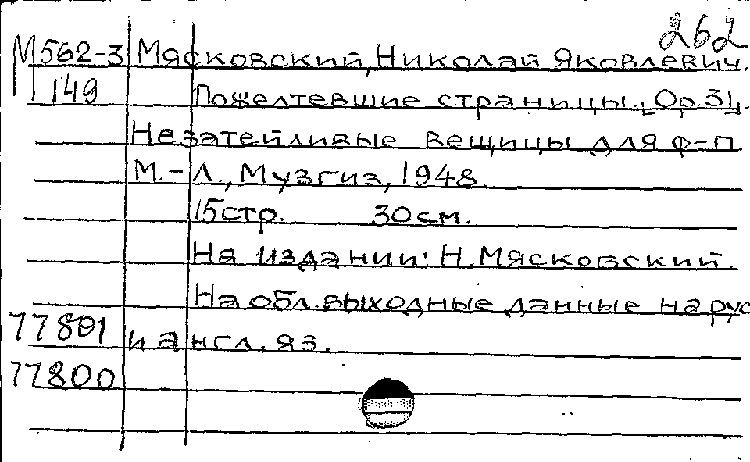 262
М562-3 Мясковский, Николай Яковлевич.
149 Пожелтевшие страницы. [Ор.31].
Незатейливые вещицы для ф-п
М.-Л., Музгиз, 1948.
15стр. 30см.
На издании: Н.Мясковский.
На обл. выходные данные на рус
77801 и англ. яз.
77800